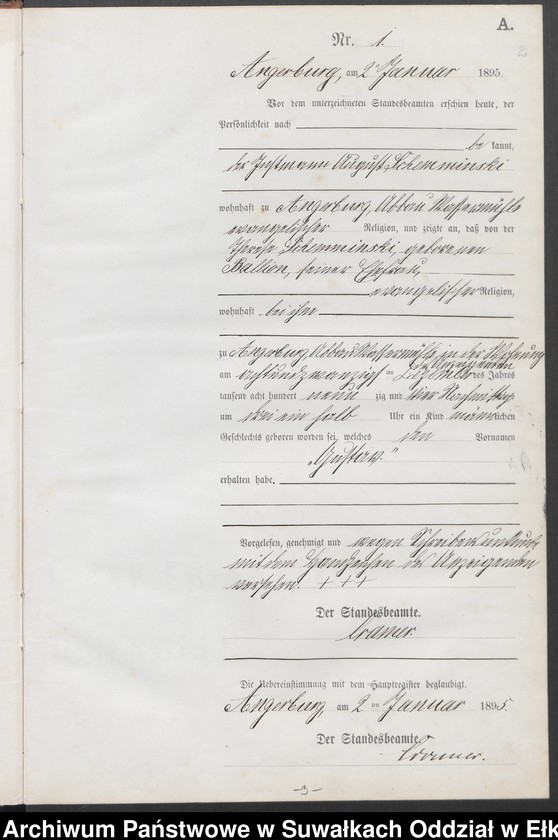 A.
2
Nr. 1.
Angerburg, am 2ten Januar 1895.
Vor dem unterzeichneten Standesbeamten erschien heute, der
Persönlichkeit nach
be kannt,
der Instmann August Schemminski
wohnhaft zu Angerburg, Abbau Wassermühle
evangelischer Religion, und zeigte an, daß von der
Therese Schemminski, geborenen
Ballion, seiner Ehefrau,
evangelischer Religion,
wohnhaft bei ihm
zu Angerburg, Abbau Wassermühle, in der Wohnung
des Anzeigenden
am achtundzwanzigsten Dezember des Jahres
tausend acht hundert neun zig und vier Nachmittags
um drei ein halb Uhr ein Kind männlichen
Geschlechts geboren worden sei, welches den Vornamen
„Gustav."
erhalten habe.
Vorgelesen, genehmigt und wegen Schreibensunkunde
mit dem Handzeichen des Anzeigenden
versehen. + + +
Der Standesbeamte.
Cramer.
Die Uebereinstimmung mit dem Hauptregister beglaubigt.
Angerburg, am 2 ten Januar 1895.
Der Standesbeamte.
Cramer.
-3-
Archiwum Państwowe w Suwałkach Oddział w Ełk